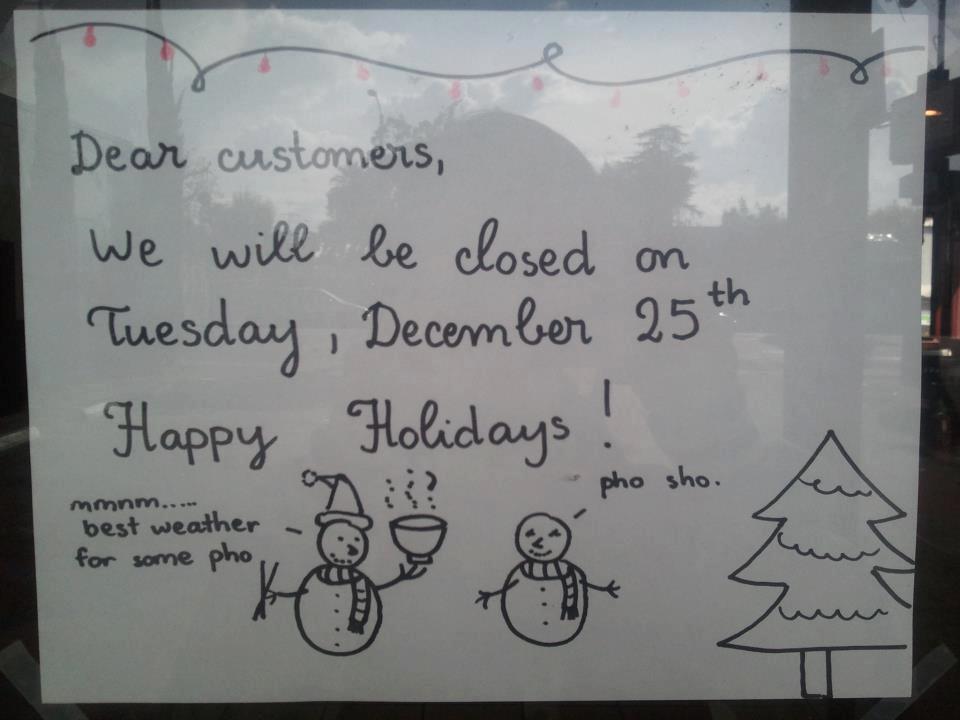 Dear customers,
We will be closed on
Tuesday, December 25th
Happy Holidays!
pho sho.
mmnm.....
best weather
for some pho